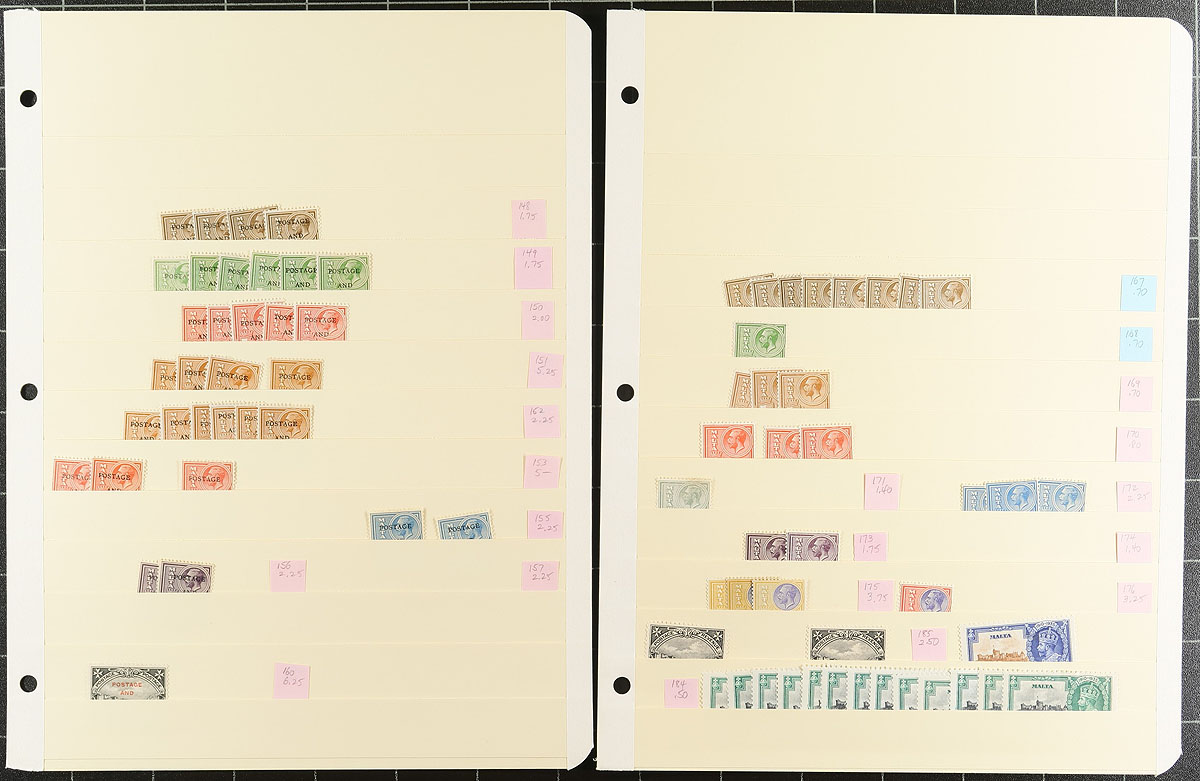 POSTAGE
AND
148
1.75
POSTAGE
AND
149
1.75
POSTAGE
AND
150
2.00
POSTAGE
151
5.25
POSTAGE
AND
162
2.25
POSTAGE
POSTAGE
153
5—
POSTAGE
POSTAGE
155
2.25
POSTAGE
156
2.25
157
2.25
POSTAGE
AND
160
6.25
167
.70
168
.70
169
.70
170
.80
171
1.40
172
2.25
173
1.75
174
1.40
175
3.75
176
3.25
185
2.50
MALTA
184
.50
MALTA